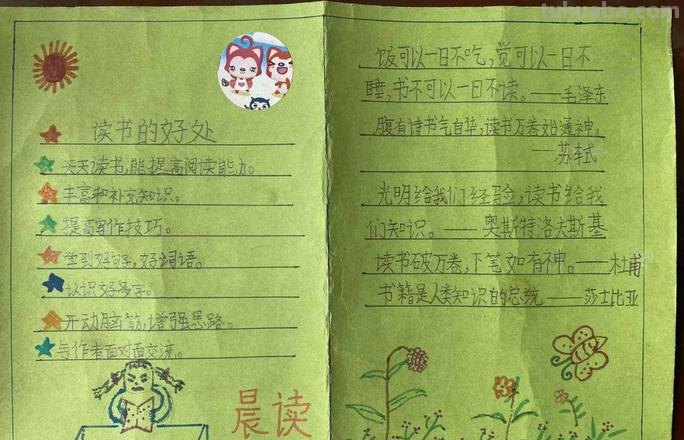 读书的好处
天天读书,能提高阅读能力。
丰富和补充知识。
提高写作技巧。
学到好句子,好词语。
认识好多字。
开动脑筋,增强思路。
与作者面对面交流。
晨读
饭可以一日不吃,觉可以一日不
睡,书不可以一日不读。——毛泽东
腹有诗书气自华,读书万卷始通神。
——苏轼
光明给我们经验,读书给我
们知识。——奥斯特洛夫斯基
读书破万卷,下笔如有神。——杜甫
书籍是人类知识的总统——莎士比亚